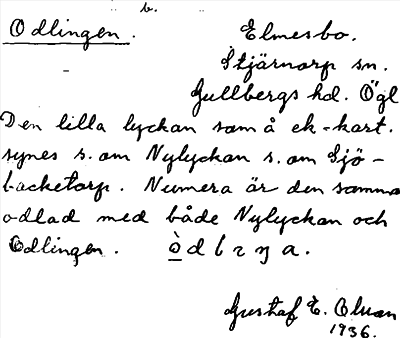 b.
Odlingen.
Elmesbo.
Stjärnorp sn.
Gullbergs hd. Ögl
Den lilla lyckan som å ek-kart.
synes s. om Nylyckan s. om Sjö-
backetorp. Numera är den samma
odlad med både Nylyckan och
Odlingen. ò d l ı ŋ a.
Gustaf E.
1936.